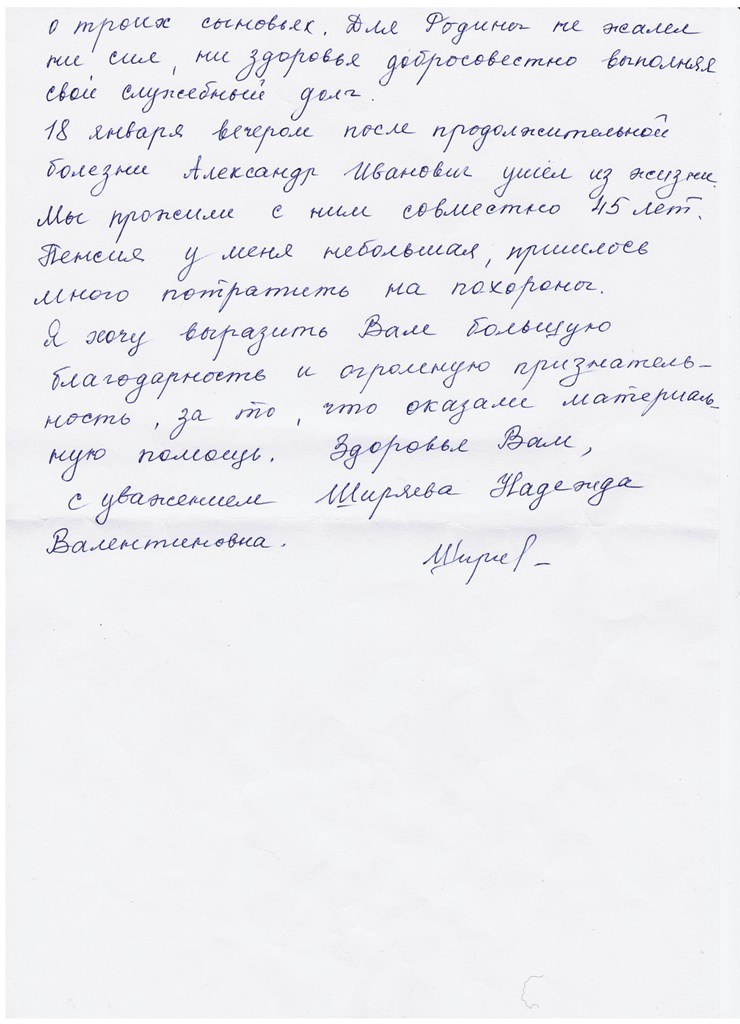 о троих сыновьях. Для Родины не жалел
ни сил, ни здоровья добросовестно выполняя
свой служебный долг.
18 января вечером после продолжительной
болезни Александр Иванович ушёл из жизни.
Мы прожили с ним совместно 45 лет.
Пенсия у меня небольшая, пришлось
много потратить на похороны.
Я хочу выразить Вам большую
благодарность и огромную признатель-
ность, за то, что оказали материаль-
ную помощь. Здоровья Вам,
с уважением Ширяева Надежда
Валентиновна.